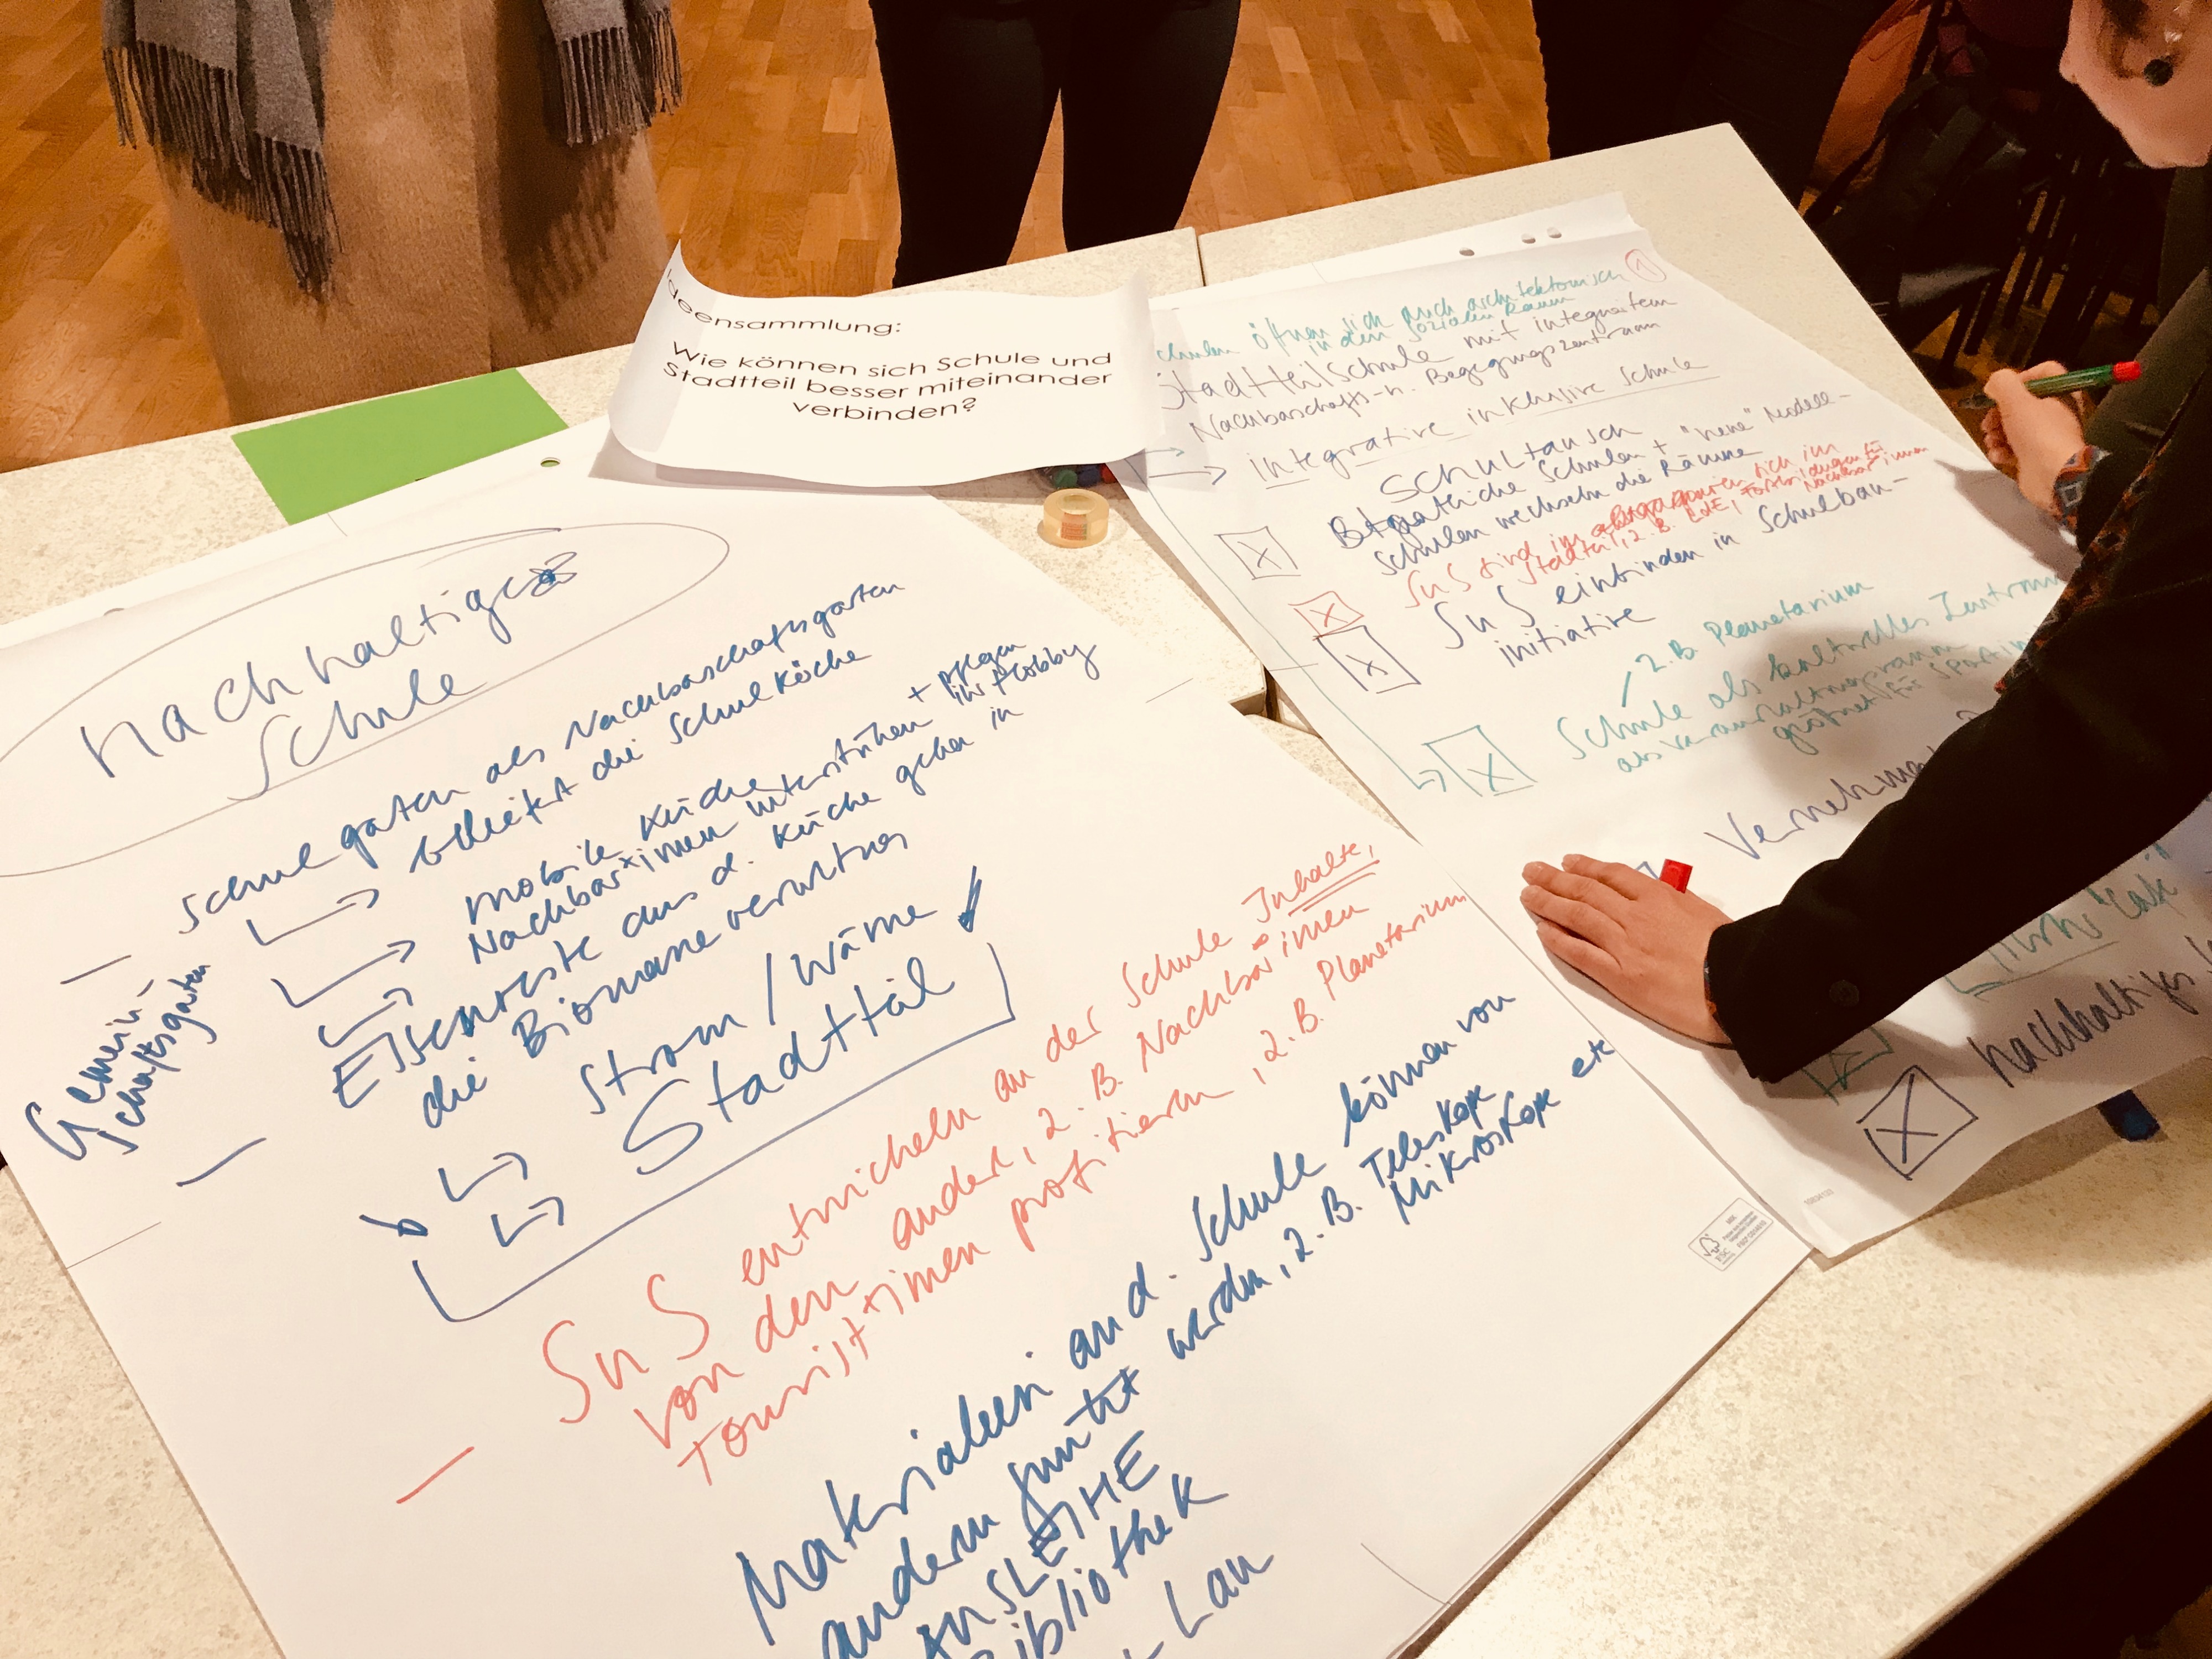 Ideensammlung:
Wie können sich Schule und
Stadtteil besser miteinander
verbinden?
nachhaltige
Schule
Schulgarten als Nachbarschaftsgarten
beliefert die Schulküche
mobile Küche
Nachbar*innen unterstützen + pflegen
ihr Hobby
Essensreste aus d. Küche gehen in
die Biomasseverwertung
Strom / Wärme
Stadtteil
Gemein-
schaftsgarten
SuS entwickeln an der Schule Inhalte,
von den andere, z.B. Nachbar*innen
tourist*innen profitieren, z.B. Planetarium
Materialien an d. Schule können von
andern genutzt werden, z.B. Teleskope
Mikroskope etc
AUSLEIHE
Bibliothek
Schulen öffnen sich auch architektonisch
in den sozialen Raum
1
Stadtteilschule mit integriertem
Nachbarschafts-u. Begegnungszentrum
integrative inklusive Schule
Schultausch
Schulen + "neue" Modell-
Schulen wechseln die Räume
SuS sind im
sich im
Stadtteil, z.B. Fortbildungen für
Nachbar*innen
SuS einbinden in Schulbau-
initiative
z.B. Planetarium
Schule als kulturelles Zentrum
als Veranstaltungsraum
geöffnet/für Sport
nachhaltiges